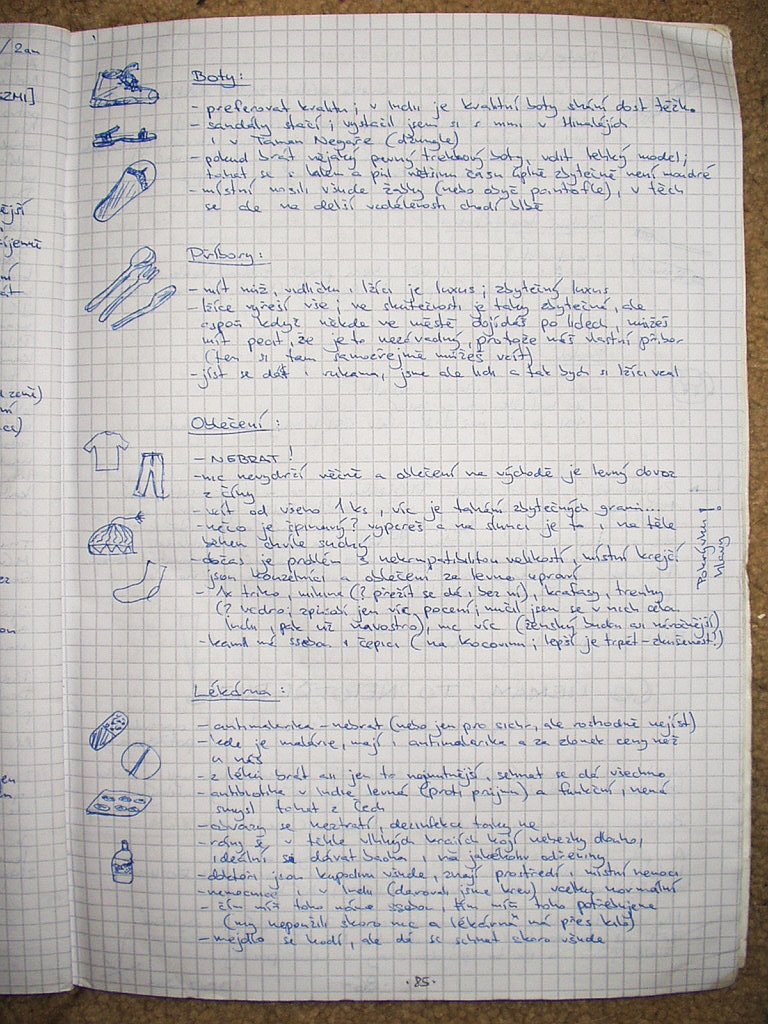 / 2am
ZMI]
ější
íjemě
ní
át
d země)
ní
ez
om
en
Boty:
- preferovat kvalitu; v Indii je kvalitní boty shání dost těžk.
- sandály stačí; vystačil jsem si s nimi v Himalájích
i v Taman Negaře (džungle)
- pokud brát nějaký pevný trekový boty, volit lehký model;
tahat se s kilem a půl většinu času úplně zbytečně není moudré
- místní nosili všude žabky (nebo obyč pantofle), v těch
se ale na delší vzdálenosti chodí blbě
Příbory:
- mít nůž, vidličku i lžíci je luxus; zbytečný luxus
- lžíce vyřeší vše; ve skutečnosti je taky zbytečná, ale
aspoň když někde ve městě dojídáš po lidech, můžeš
mít pocit, že je to nezávadný, protože máš vlastní příbor
(ten si tam samozřejmě můžeš vzít)
- jíst se dá i rukama, jsme ale lidi a tak bych si lžíci vzal
Oblečení:
- NEBRAT!
- nic nevydrží věčně a oblečení na východě je levný dovoz
z číny
- vzít od všeho 1 ks, víc je tahání zbytečných gramů...
- něco je špinavý? vypereš a na slunci je to i na těle
během chvíle suchý
- občas je problém s nekompatibilitou velikostí, místní krejčí
jsou kouzelníci a oblečení za levno upraví
- 1x triko, mikina (? přežít se dá i bez ní), kraťasy, trenky
(? vedro; způsobí jen víc pocení; mučil jsem se v nich celou
Indii, pak už naostro), nic víc (ženský budou asi náročnější)
- Kamil má sebou i čepici (na kocovinu; lepší je trpět - zkušenost!)
Pokrývku hlavy!
Lékárna:
- antimalarika - nebrat (nebo jen pro sichr, ale rozhodně nejíst)
- kde je malárie, mají i antimalarika a za zlomek ceny než
u nás
- z léků brát asi jen to nejnutnější, sehnat se dá všechno
- antibiotika v Indii levná (proti průjmu) a funkční, nená
smysl tahat z Čech
- obvazy se neztratí, dezinfekce taky ne
- rány se v těhle vlhkých krajích hojí nehezky dlouho,
ideální si dávat bacha i na jakékoliv odřeniny
- doktoři jsou kapacitou všude, znají prostředí i místní nemoci
- nemocnice i v Indii (darovali jsme krev) vcelku normální
- čím míň toho máme ssebou, tím míň toho potřebujeme
(my nepoužili skoro nic a "lékárna" má přes kilo)
- mejdlo se hodí, ale dá se sehnat skoro všude
· 85 ·